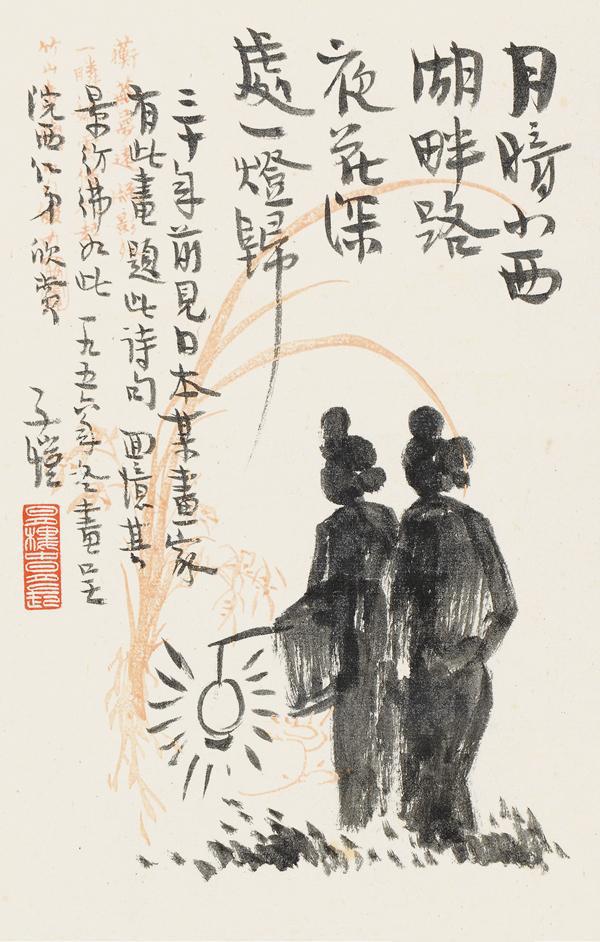 月暗小西
湖畔路
夜花深
處一燈歸
三十年前見日本某畫家
有此畫題此詩句回憶其
景彷彿如此一九五六年冬畫呈
浣西仁弟欣賞
子愷